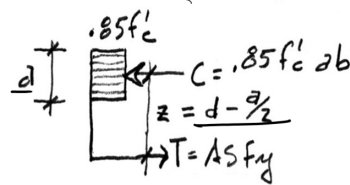 .85f'c
d
C = .85f'c ab
z = d - a/2
T = ASfy